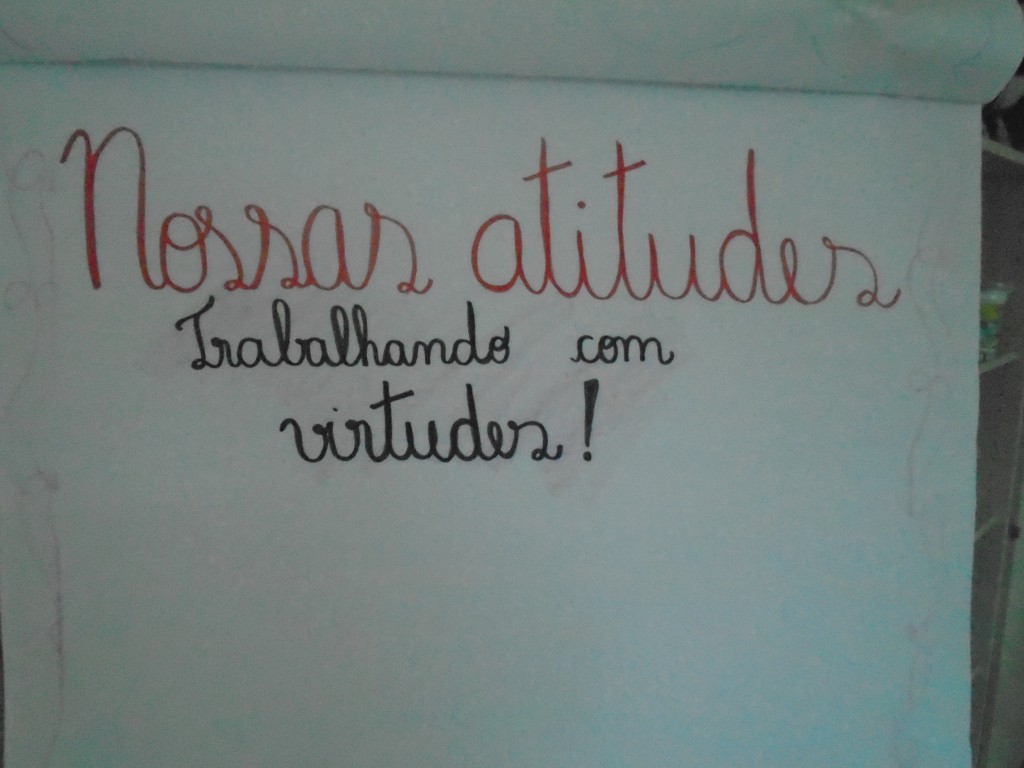 Nossas atitudes
Trabalhando com
virtudes!